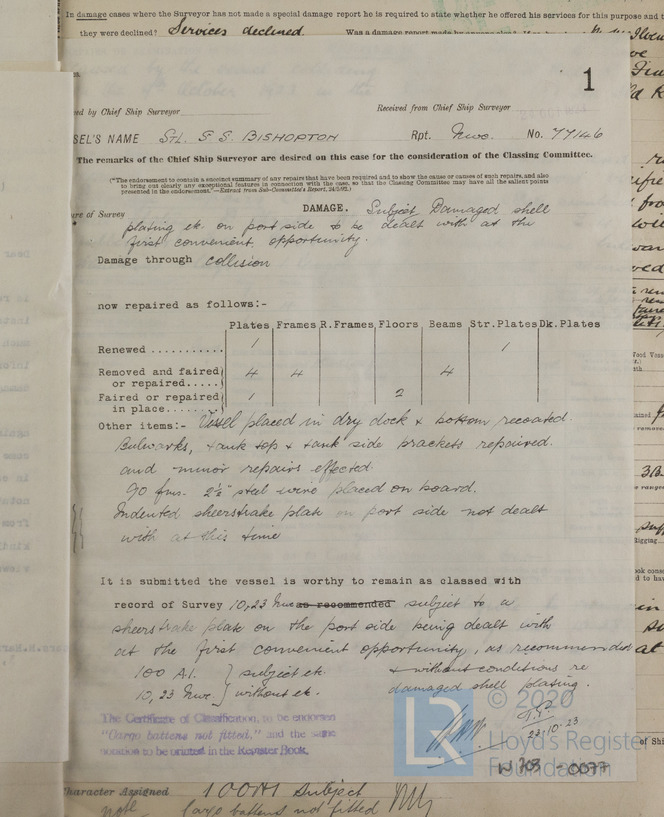 In damage cases where the Surveyor has not made a special damage report he is required to state whether he offered his services for this purpose and
they were declined? Services declined.
1
ed by Chief Ship Surveyor
Received from Chief Ship Surveyor
SEL'S NAME Stl. S.S. BISHOPTON Rpt. Nwc. No. 77146
The remarks of the Chief Ship Surveyor are desired on this case for the consideration of the Classing Committee.
("The endorsement to contain a succinct summary of any repairs that have been required and to show the cause or causes of such repairs, and also
to bring out clearly any exceptional features in connection with the case, so that the Classing Committee may have all the salient points
presented in the endorsement."—Extract from Sub-Committee's Report, 24/2/02.)
ure of Survey DAMAGE. Subject Damaged shell
plating etc. on port side to be dealt with at the
first convenient opportunity.
Damage through collision
now repaired as follows:-
Plates Frames R.Frames Floors Beams Str.Plates Dk.Plates
Renewed........... 1 1
Removed and faired
or repaired..... 4 4 4
Faired or repaired
in place........ 1 2
Other items:- Vessel placed in dry dock & bottom recoated.
Bulwarks, tank top & tank side brackets repaired.
and minor repairs effected.
90 fms. 2½" steel wire placed on board.
Indented sheerstrake plate on port side not dealt
with at this time
It is submitted the vessel is worthy to remain as classed with
record of Survey 10,23 Nwc as recommended subject to a
sheerstrake plate on the port side being dealt with
at the first convenient opportunity, as recommended
100 A.1. } subject etc. & without conditions re
10,23 Nwc. } without etc. damaged shell plating.
23.10.23
The Certificate of Classification, to be endorsed
"Cargo battens not fitted," and the same
notation to be printed in the Register Book.
© 2020
Lloyd's Register
Foundation
W708-0077
Character Assigned 100A1 Subject
note Cargo battens not fitted